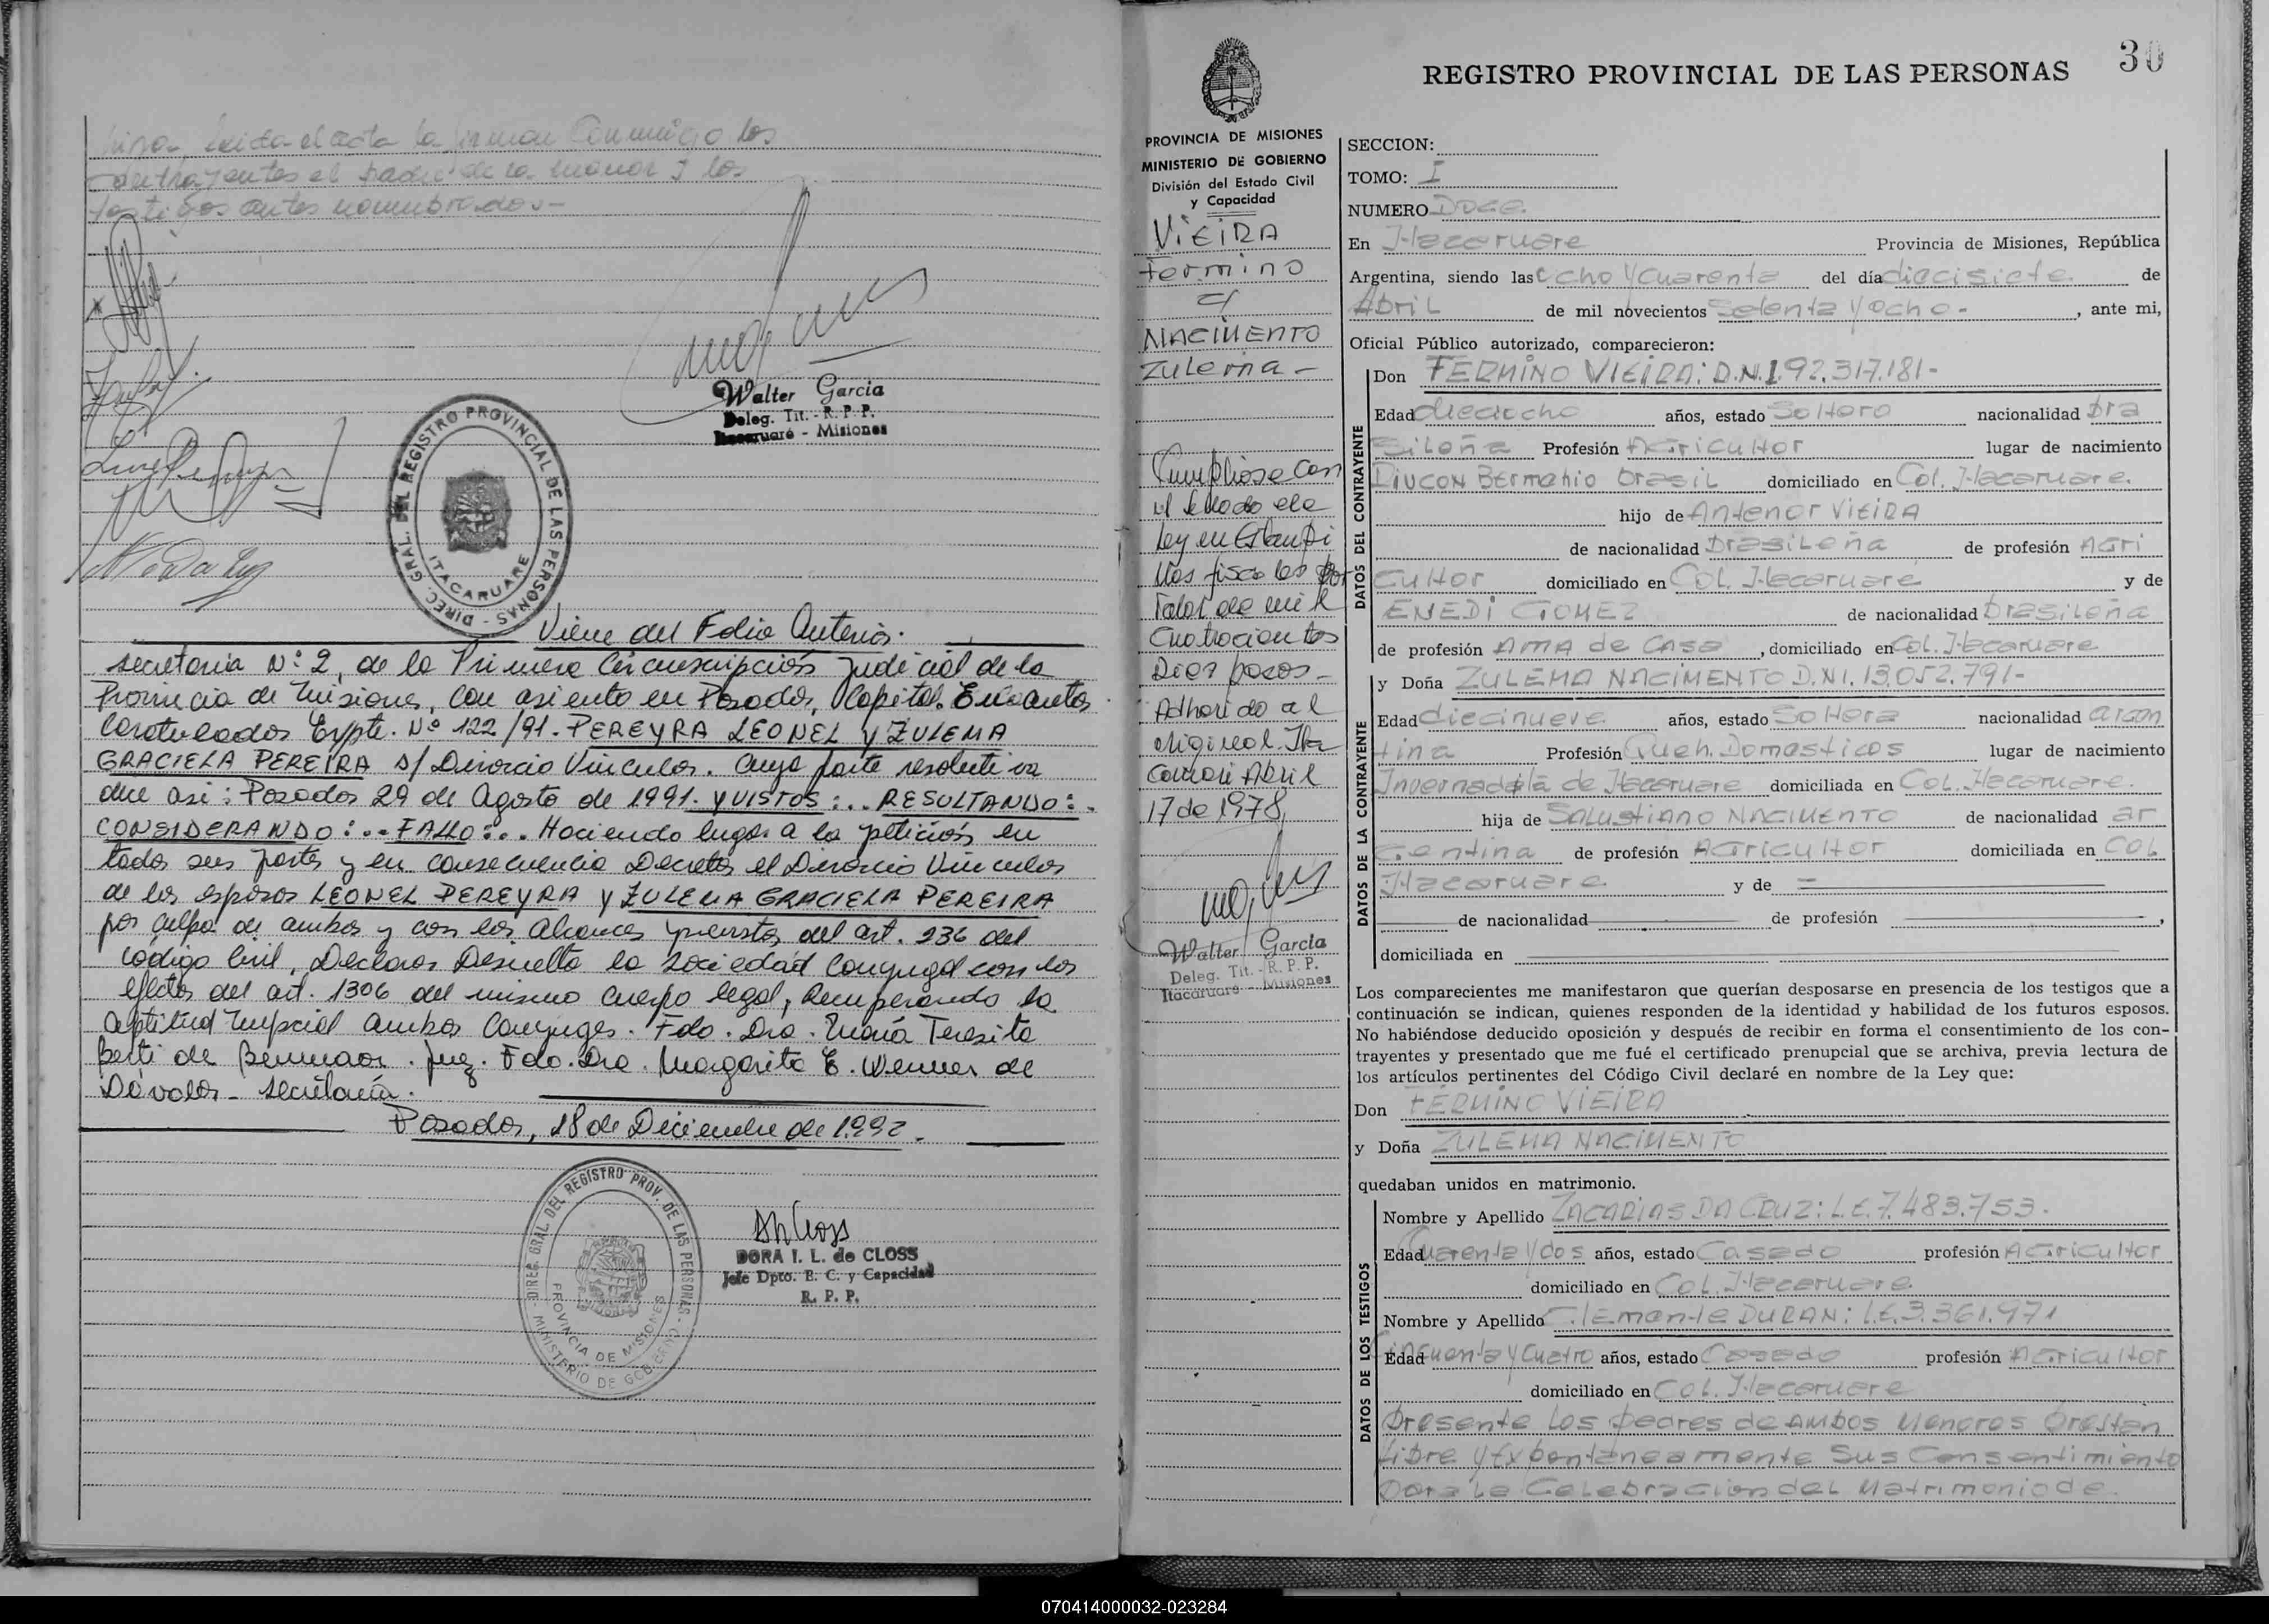 leida el acta la firman Conmigo los
contrayentes el padre de la menor y los
testigos antes nombrados-
Walter Garcia
Deleg. Tit. - R. P. P.
Itacaruaré - Misiones
DIREC. GRAL. DEL REGISTRO PROVINCIAL DE LAS PERSONAS -
ITACARUARE
Viene del Folio Anterior.
secretaria Nº 2, de la Primera Circunscripción Judicial de la
Provincia de Misiones, con asiento en Posadas, Capital. En autos
Caratulados Expte. Nº 122/91. PEREYRA LEONEL y ZULEMA
GRACIELA PEREIRA S/ Divorcio Vincular. Cuya parte resolutiva
dice asi: Posadas 29 de Agosto de 1991. Y VISTOS:.. RESULTANDO:.
CONSIDERANDO:.. FALLO:.. Haciendo lugar a la petición en
todas sus partes y en consecuencia Decretar el Divorcio Vincular
de los esposos LEONEL PEREYRA y ZULEMA GRACIELA PEREIRA
por culpa de ambos y con los alcances previstos del art. 236 del
código Civil, Declarar Disuelta la Sociedad Conyugal con los
efectos del art. 1306 del mismo cuerpo legal, Recuperando la
aptitud Nupcial ambos Conyuges. Fdo. Dra. María Teresita
de juez. Fdo. Dra. Margarita E. de
Dávalos - Secretaria.
Posadas, 18 de Diciembre de 1992.
DIREC. GRAL. DEL REGISTRO PROV. DE LAS PERSONAS -
PROVINCIA DE MISIONES
MINISTERIO DE GOBIERNO
DORA I. L. de CLOSS
Jefe Dpto. E. C. y Capacidad
R. P. P.
30
REGISTRO PROVINCIAL DE LAS PERSONAS
PROVINCIA DE MISIONES
MINISTERIO DE GOBIERNO
División del Estado Civil
y Capacidad
VIEIRA
Fermino
c/
NACIMENTO
Zulema -
Cumpliose con
el sellado de
Ley en Estampi
llas fiscales por
Valor de mil
Cuatrocientos
Diez pesos -
Adherido al
original. Ita
caruaré Abril
17 de 1978,
Walter Garcia
Deleg. Tit. - R. P. P.
Itacaruaré - Misiones
SECCION:
TOMO: I
NUMERO DOCE.
En Itacaruare Provincia de Misiones, República
Argentina, siendo las ocho y cuarenta del día diecisiete de
Abril de mil novecientos Setenta y ocho - , ante mi,
Oficial Público autorizado, comparecieron:
DATOS DEL CONTRAYENTE
Don FERMINO VIEIRA: D.N.I. 92.317.181-
Edad dieciocho años, estado Soltero nacionalidad bra
sileña Profesión Agricultor lugar de nacimiento
Brasil domiciliado en Col. Itacaruare.
hijo de Antenor VIEIRA
de nacionalidad brasileña de profesión Agri
cultor domiciliado en Col. Itacaruare y de
ENEDI GOMEZ de nacionalidad brasileña
de profesión Ama de Casa , domiciliado en Col. Itacaruare
DATOS DE LA CONTRAYENTE
y Doña ZULEMA NACIMENTO D.N.I. 13.052.791-
Edad diecinueve años, estado Soltera nacionalidad argen
tina Profesión Queh. Domesticos lugar de nacimiento
Invernada de Itacaruare domiciliada en Col. Itacaruare.
hija de Salustiano NACIMENTO de nacionalidad ar
gentina de profesión Agricultor domiciliada en Col
Itacaruare y de
de nacionalidad de profesión ,
domiciliada en
Los comparecientes me manifestaron que querían desposarse en presencia de los testigos que a
continuación se indican, quienes responden de la identidad y habilidad de los futuros esposos.
No habiéndose deducido oposición y después de recibir en forma el consentimiento de los con-
trayentes y presentado que me fué el certificado prenupcial que se archiva, previa lectura de
los artículos pertinentes del Código Civil declaré en nombre de la Ley que:
Don FERMINO VIEIRA
y Doña ZULEMA NACIMENTO
quedaban unidos en matrimonio.
DATOS DE LOS TESTIGOS
Nombre y Apellido ZACARIAS DA CRUZ: L.E. 7.483.753.
Edad Cuarenta y dos años, estado Casado profesión Agricultor
domiciliado en Col. Itacaruare
Nombre y Apellido Clemente DURAN: L.E. 3.361.971
Edad Cincuenta y Cuatro años, estado Casado profesión Agricultor
domiciliado en Col. Itacaruare
Presente los padres de ambos Menores Prestan
Libre y Expontaneamente Sus Consentimiento
Para la Celebracion del Matrimonio de
070414000032-023284